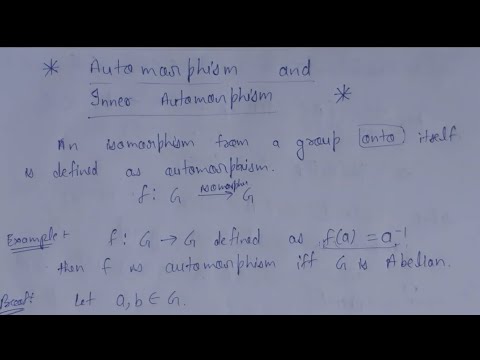 * Automorphism and
Inner Automorphism *
An isomorphism from a group onto itself
is defined as automorphism.
f: G isomorphic→ G
Example: f: G → G defined as f(a) = a⁻¹
then f is automorphism iff G is Abelian.
Proof: Let a, b ∈ G.